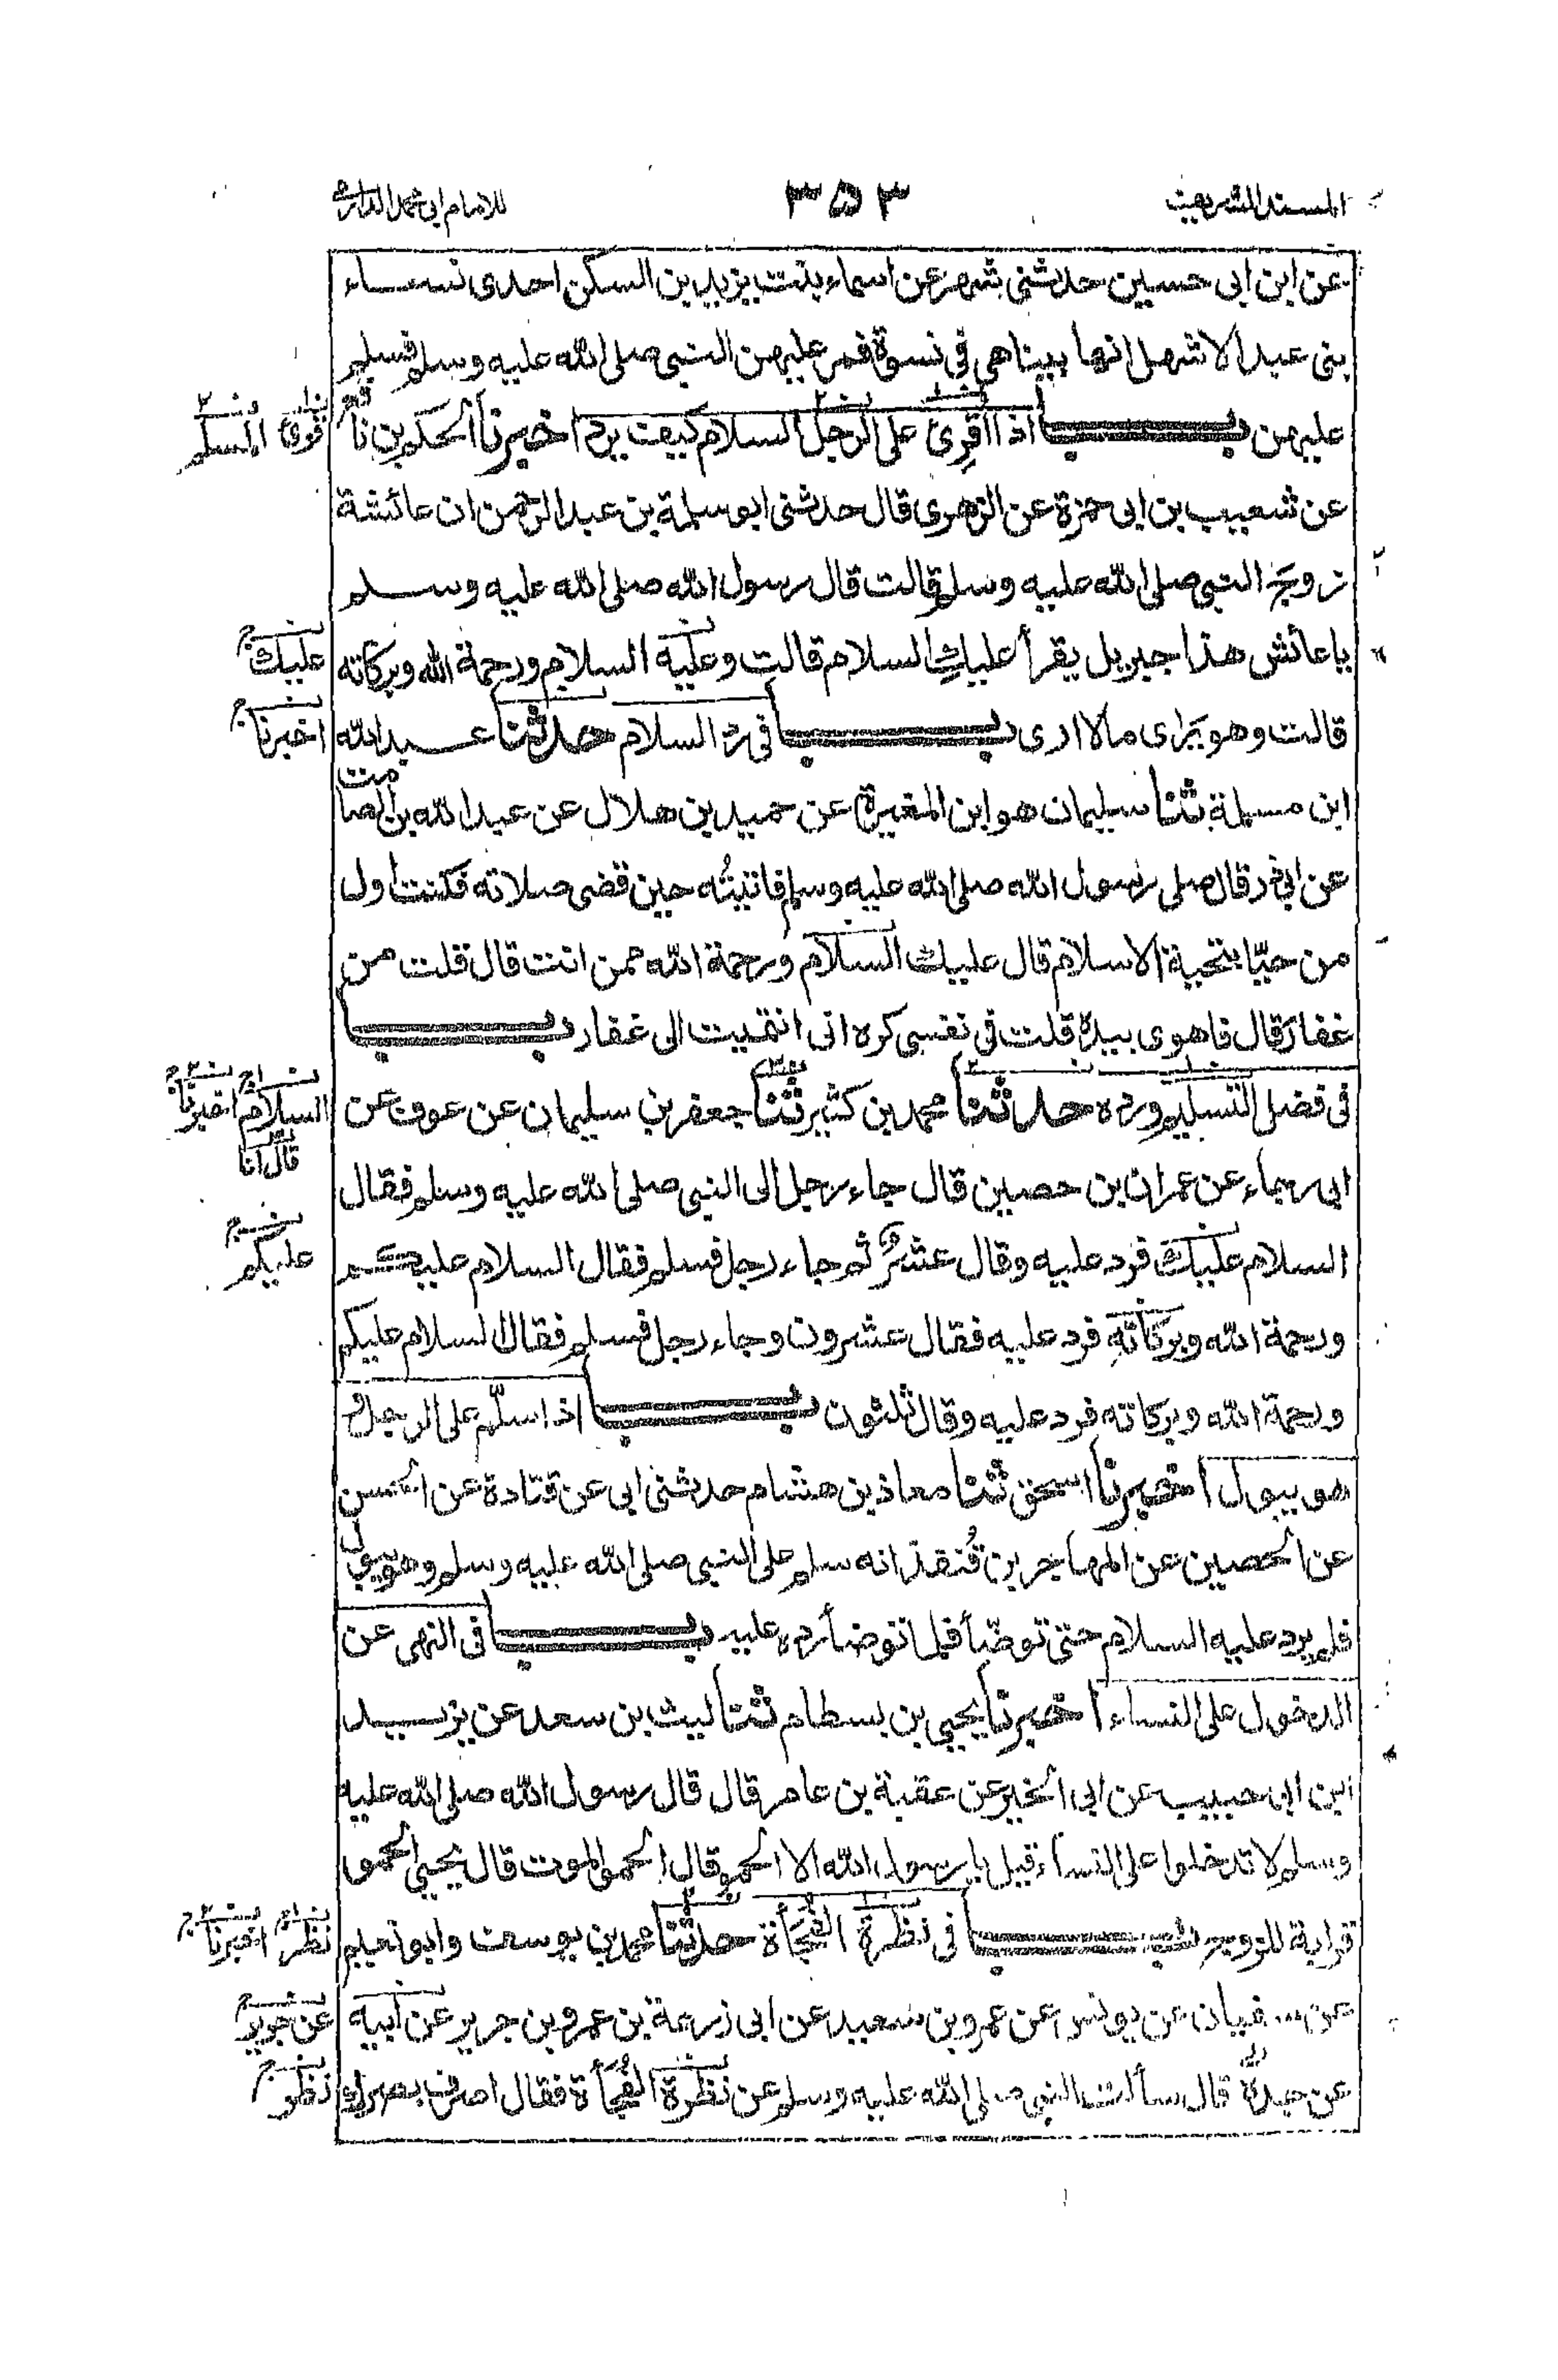 المسند الشريف ٣٥٣ للامام ابى محمد الدارمى
عن ابن ابى حسين حدثنى شهر عن اسماء بنت يزيد بن السكن احدى نساء
بنى عبد الاشهل انها بيناهى فى نسوة فمر عليهن النبى صلى الله عليه وسلم فسلم
عليهن باب اذا اقرئ على الرجل السلام كيف يرد اخبرنا الحكم بن نافع
قرئ المسلم
عن شعيب بن ابى حمزة عن الزهرى قال حدثنى ابو سلمة بن عبد الرحمن ان عائشة
زوج النبى صلى الله عليه وسلم قالت قال رسول الله صلى الله عليه وسلم
يا عائش هذا جبريل يقرأ عليك السلام قالت وعليه السلام ورحمة الله وبركاته
عليك
قالت وهو يرى مالا ارى باب فى رد السلام حدثنا عبد الله
اخبرنا
ابن مسلمة ثنا سليمان هو ابن المغيرة عن حميد بن هلال عن عبد الله بن الصامت
عن ابى ذر قال صلى رسول الله صلى الله عليه وسلم فاتيتُه حين قضى صلاته فكنت اول
من حيّا بتحية الاسلام قال عليك السلام ورحمة الله ممن انت قال قلت من
غفار قال فاهوى بيده قلت فى نفسى كره انى انتميت الى غفار باب
فى فضل التسليم ورده حدثنا محمد بن كثير ثنا جعفر بن سليمان عن عوف عن
السلام اخبرنا
قال انا
ابى رجاء عن عمران بن حصين قال جاء رجل الى النبى صلى الله عليه وسلم فقال
السلام عليك فرد عليه وقال عشر ثم جاء رجل فسلم فقال السلام عليكم
عليكم
ورحمة الله وبركاته فرد عليه فقال عشرون وجاء رجل فسلم فقال السلام عليكم
ورحمة الله وبركاته فرد عليه وقال ثلثون باب اذا سلّم على الرجل و
هو يبول اخبرنا اسحق ثنا معاذ بن هشام حدثنى ابى عن قتادة عن الحسن
عن الحصين عن المهاجر بن قُنفذ انه سلم على النبى صلى الله عليه وسلم وهو يبول
فلم يرد عليه السلام حتى توضّأ فلما توضأ رده عليه باب فى النهى عن
الدخول على النساء اخبرنا يحيى بن بسطام ثنا ليث بن سعد عن يزيد
ابن ابى حبيب عن ابى الخير عن عقبة بن عامر قال قال رسول الله صلى الله عليه
وسلم لا تدخلوا على النساء قيل يا رسول الله الا الحمو قال الحمو الموت قال يحيى الحمو
قرابة للزوج باب فى نظرة الفجأة حدثنا محمد بن يوسف وابو نعيم
نظر اخبرنا
عن سفيان عن يونس عن عمرو بن سعيد عن ابى زرعة بن عمرو بن جرير عن ابيه
عن جرير
عن جده قال سألت النبى صلى الله عليه وسلم عن نظرة الفُجأة فقال اصرف بصرك
نظر